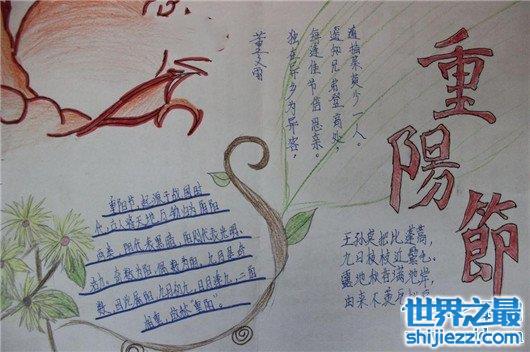 重陽節
董文雨
独在异乡为异客,
每逢佳节倍思亲。
遥知兄弟登高处,
遍插茱萸少一人。
重阳节,起源于战国时
代,古人将天地万物归为阴阳
两类,阴代表黑暗,阳则代表光明、
活力。奇数为阳,偶数为阴。九是奇
数,因此属阳,九月初九,日月逢九,二阳
相重,故称"重阳"。
王孙莫把比蓬蒿,
九日枝枝近鬓毛。
满池岸,
由来不羡
世界之最
shijiezz.com